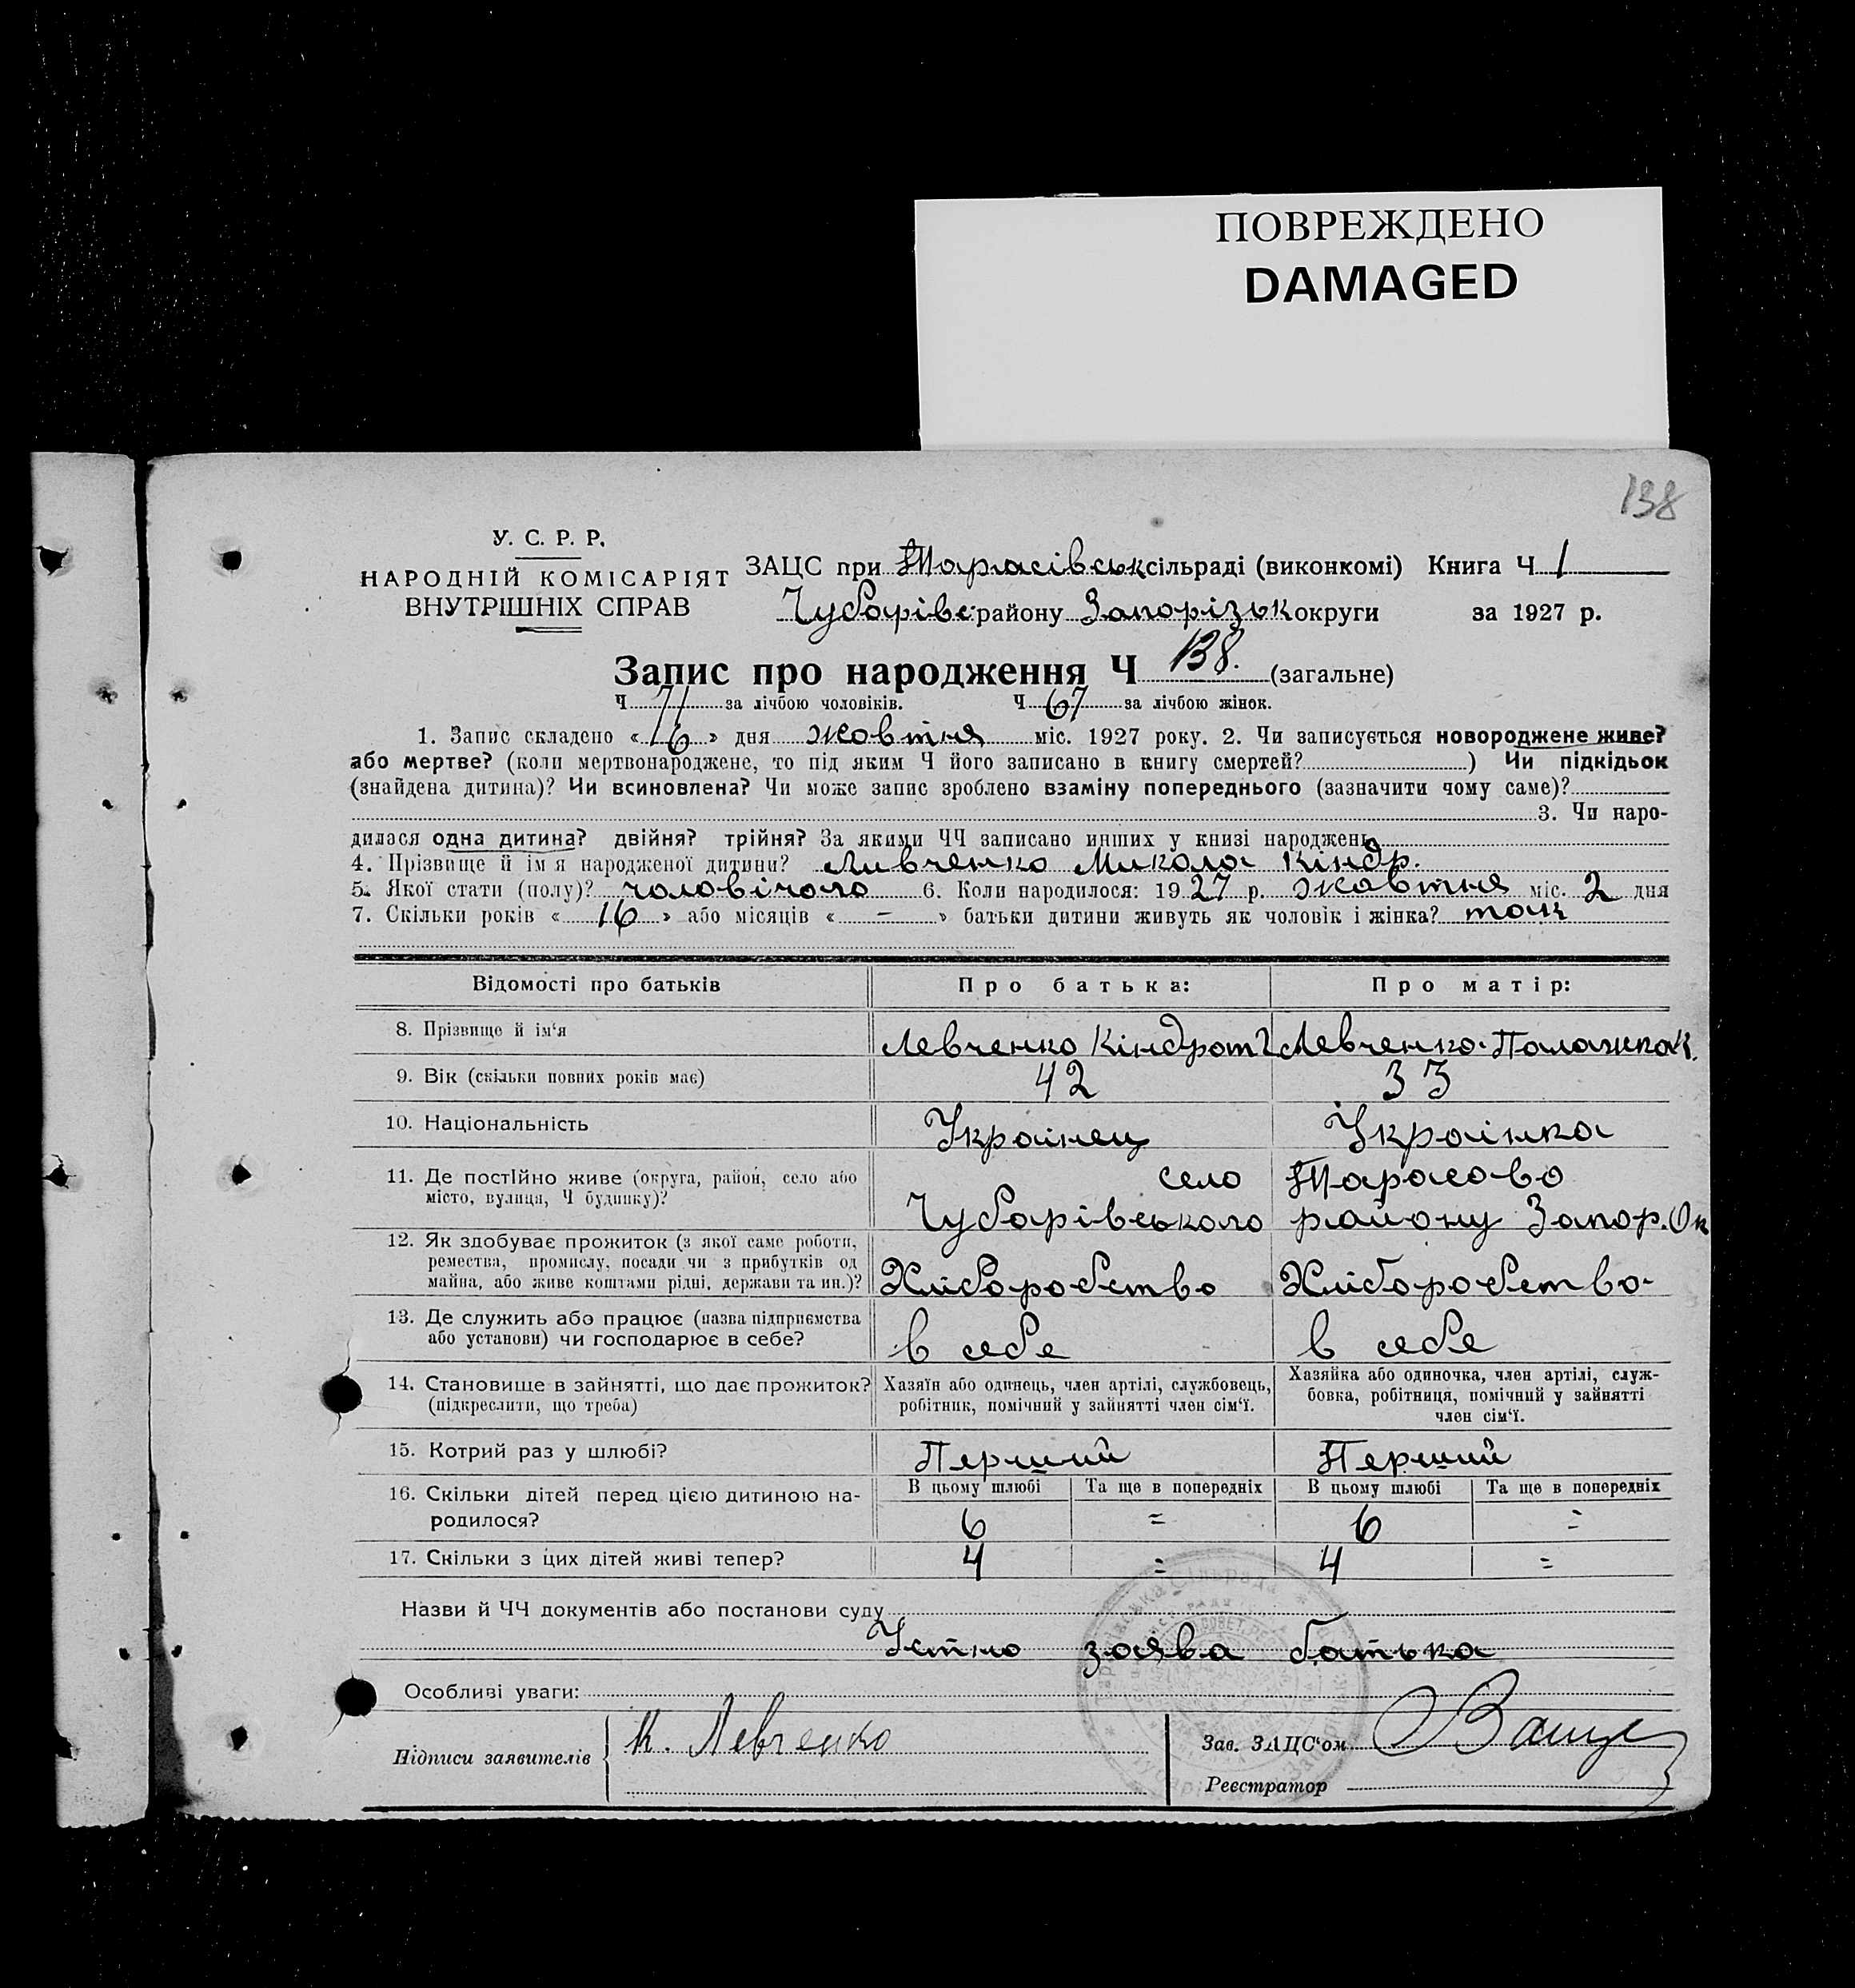 ПОВРЕЖДЕНО
DAMAGED
138
У. С. Р. Р.
НАРОДНІЙ КОМІСАРІЯТ
ВНУТРІШНІХ СПРАВ
ЗАЦС при Тарасівськ сільраді (виконкомі) Книга Ч 1
Чубарівс району Запорізьк округи за 1927 р.
Запис про народження Ч 138. (загальне)
Ч 71 за лічбою чоловіків. Ч 67 за лічбою жінок.
1. Запис складено « 16 » дня жовтня міс. 1927 року. 2. Чи записується новороджене живе?
або мертве? (коли мертвонароджене, то під яким Ч його записано в книгу смертей? ) Чи підкідьок
(знайдена дитина)? Чи всиновлена? Чи може запис зроблено взаміну попереднього (зазначити чому саме)?
3. Чи наро-
дилася одна дитина? двійня? трійня? За якими ЧЧ записано инших у книзі народжень
4. Прізвище й ім'я народженої дитини? Левченко Микола Кіндр.
5. Якої стати (полу)? чоловічого 6. Коли народилося: 1927 р. жовтня міс. 2 дня
7. Скільки років « 16 » або місяців « – » батьки дитини живуть як чоловік і жінка? так
Відомості про батьків Про батька: Про матір:
8. Прізвище й ім'я Левченко Кіндрат Левченко Палажка К.
9. Вік (скільки повних років має) 42 33
10. Національність Українець Українка
11. Де постійно живе (округа, район, село або село Тарасово
місто, вулиця, Ч будинку)? Чубарівського району Запор. Ок
12. Як здобуває прожиток (з якої саме роботи,
ремества, промислу, посади чи з прибутків од
майна, або живе коштами рідні, держави та ин.)? Хліборобство Хліборобство
13. Де служить або працює (назва підприємства
або установи) чи господарює в себе? в себе в себе
14. Становище в зайнятті, що дає прожиток? Хазяїн або одинець, член артілі, службовець, Хазяйка або одиночка, член артілі, служ-
(підкреслити, що треба) робітник, помічний у зайнятті член сім'ї. бовка, робітниця, помічний у зайнятті
член сім'ї.
15. Котрий раз у шлюбі? Перший Перший
16. Скільки дітей перед цією дитиною на- В цьому шлюбі Та ще в попередніх В цьому шлюбі Та ще в попередніх
родилося? 6 = 6 =
17. Скільки з цих дітей живі тепер? 4 = 4 =
Назви й ЧЧ документів або постанови суду
Устно заява батька
Особливі уваги:
Підписи заявителів К. Левченко Зав. ЗАЦС'ом
Реєстратор